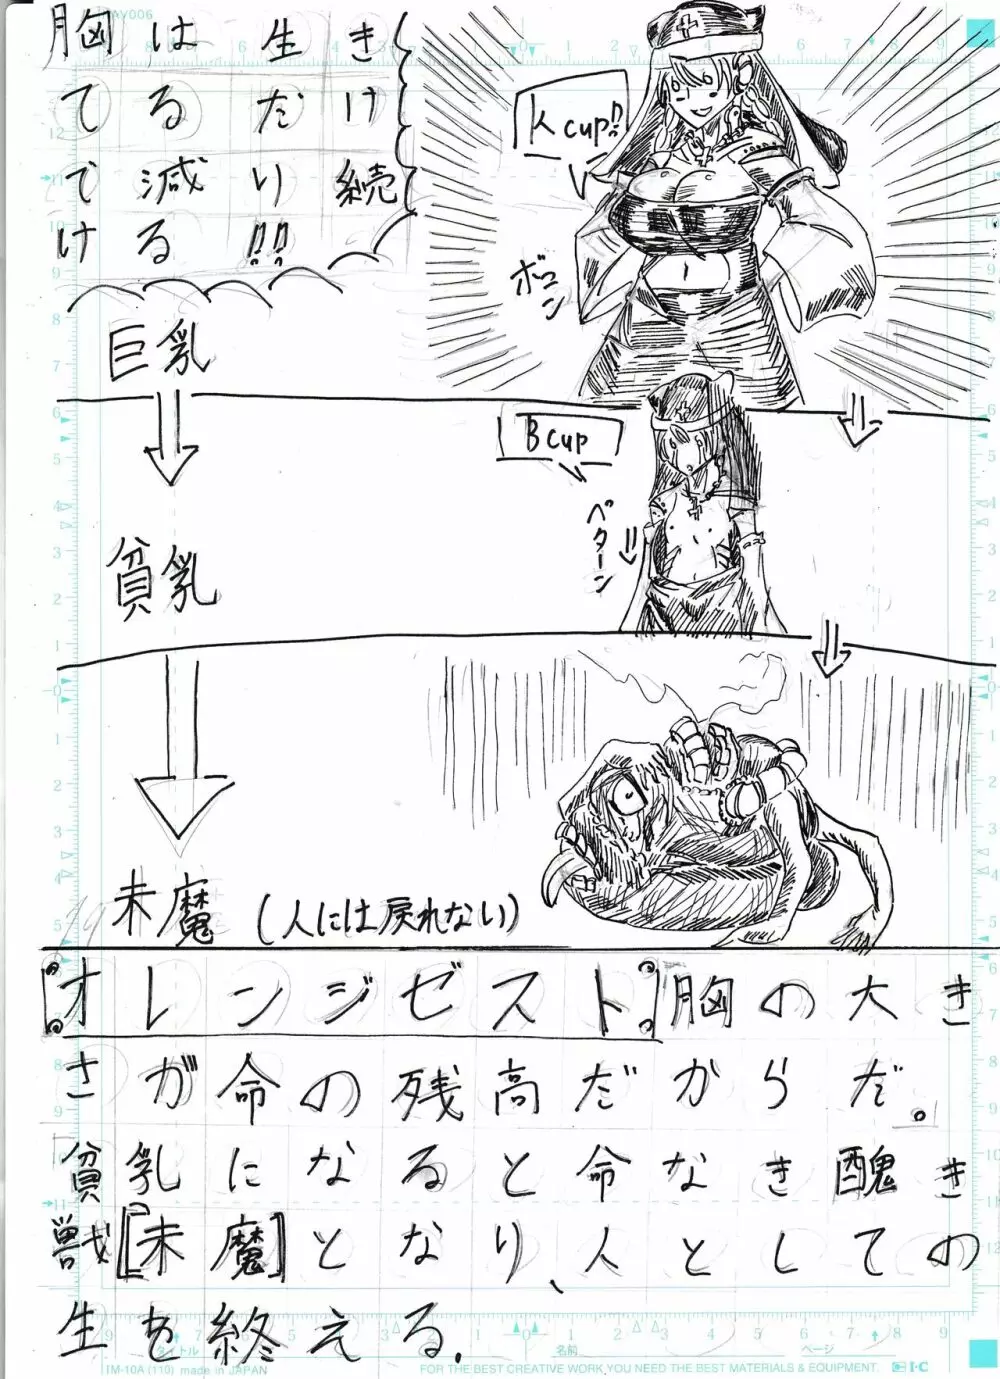 AV006
胸は生き
てるだけ
で減り続
ける!!
K cup!!
ボヨン
巨乳
B cup
ペターン
貧乳
未魔 (人には戻れない)
『オレンジゼスト』胸の大き
さが命の残高だからだ。
貧乳になると命なき醜き
獣[未魔]となり、人としての
生を終える.
タイトル
名前
ページ
IM-10A (110) made in JAPAN
FOR THE BEST CREATIVE WORK, YOU NEED THE BEST MATERIALS & EQUIPMENT.
I·C